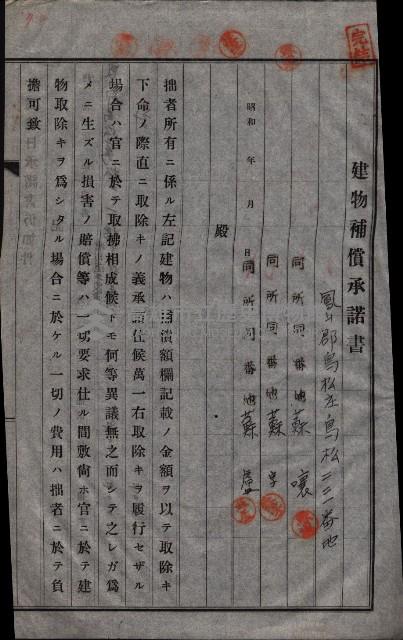 建物補償承諾書
鳳山郡鳥松庄鳥松二二一番地
同所同番地 蘇 嚷
同所同番地 蘇
同所同番地 蘇
昭和 年 月 日
殿
拙者所有ニ係ル左記建物ハ補償額欄記載ノ金額ヲ以テ取除キ
下命ノ際直ニ取除キノ義承諾仕候萬一右取除キヲ履行セザル
場合ハ官ニ於テ取拂相成候トモ何等異議無之而シテ之レガ爲
メニ生ズル損害ノ賠償等ハ一切要求仕ル間敷尙ホ官ニ於テ建
物取除キヲ爲シタル場合ニ於ケル一切ノ費用ハ拙者ニ於テ負
擔可致